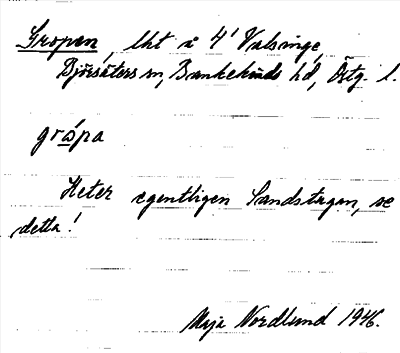 Gropen, lht å 4' Valsinge,
Björsäters sn, Bankekinds hd, Östg. l.
grópa
Heter egentligen Sandstugan, se
detta!
Maja Nordlund 1946.